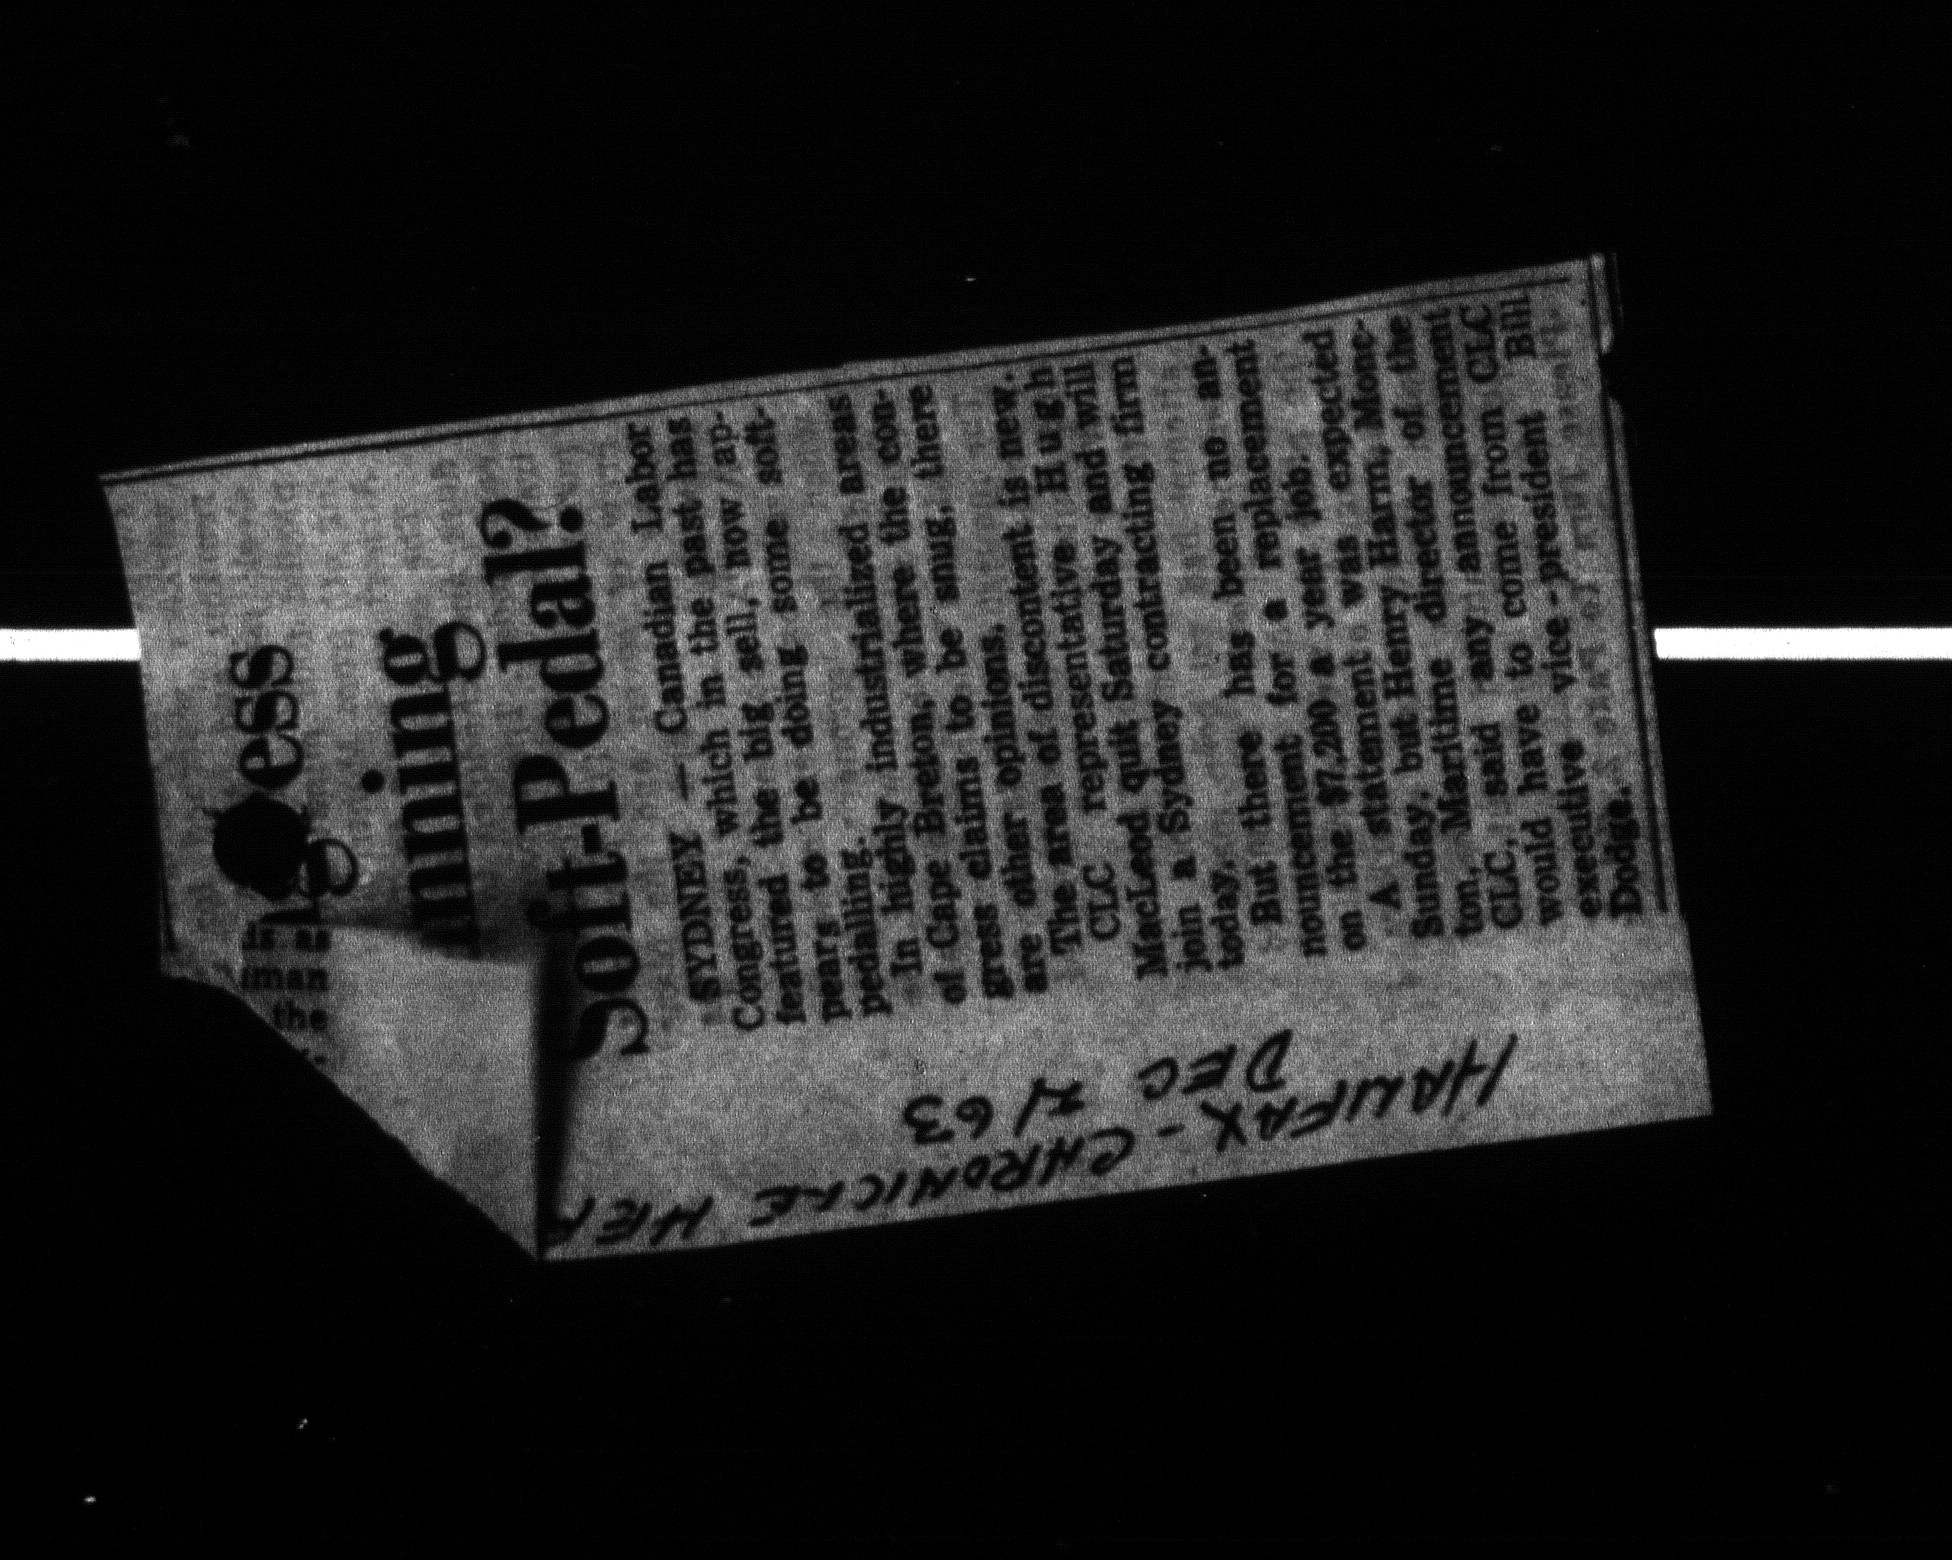 g ess
nning
Soft-Pedal?
SYDNEY — Canadian Labor
Congress, which in the past has
featured the big sell, now ap-
pears to be doing some soft-
pedalling.
In highly industrialized areas
of Cape Breton, where the con-
gress claims to be snug, there
are other opinions.
The area of discontent is new.
CLC representative Hugh
MacLeod quit Saturday and will
join a Sydney contracting firm
today.
But there has been no an-
nouncement for a replacement
on the $7,200 a year job.
A statement was expected
Sunday, but Henry Harm, Monc-
ton, Maritime director of the
CLC, said any announcement
would have to come from CLC
executive vice-president Bill
Dodge.
is as
man
the
HALIFAX - CHRONICLE HER
DEC 2/63